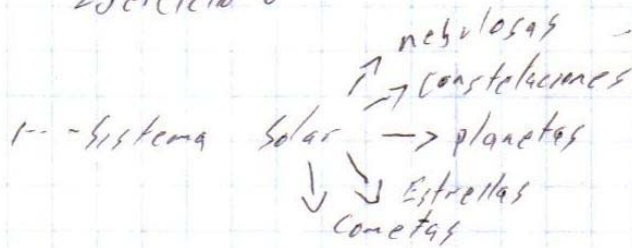 Ejercicio
nebulosas
Constelaciones
1-- - Sistema Solar -> planetas
Estrellas
Cometas